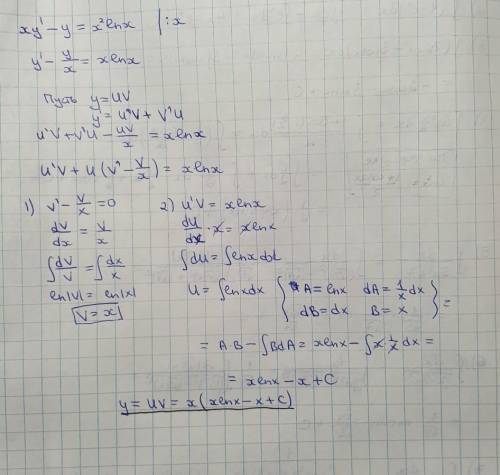 xy' - y = x²lnx | :x
y' - y/x = xlnx
Пусть y = UV
y' = U'V + V'U
U'V + V'U - UV/x = xlnx
U'V + U(V' - V/x) = xlnx
1) V' - V/x = 0 2) U'V = xlnx
dV/dx = V/x dU/dx · x = xlnx
∫dV/V = ∫dx/x ∫dU = ∫lnxdx
ln|V| = ln|x| U = ∫lnxdx { A = lnx dA = 1/x dx
V = x dB = dx B = x } =
= A·B - ∫BdA = xlnx - ∫x 1/x dx =
= xlnx - x + C
y = UV = x(xlnx - x + C)